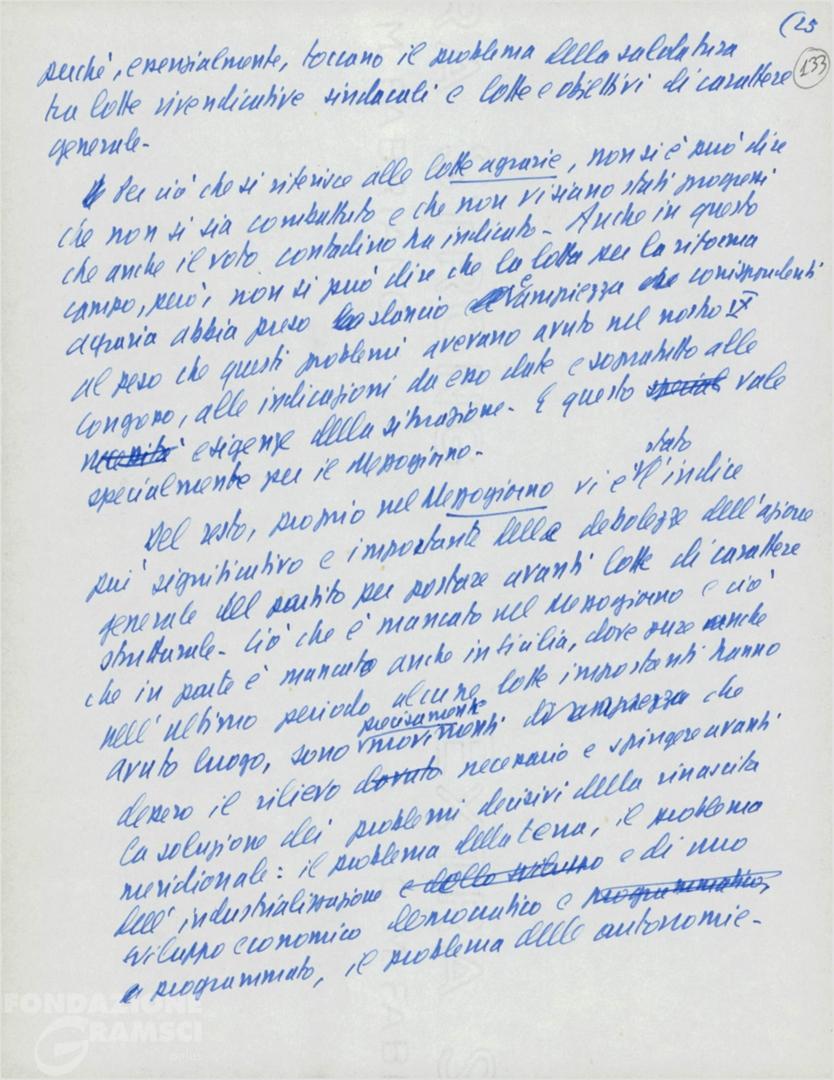 (25
133
perché, essenzialmente, toccano il problema della saldatura
tra lotte rivendicative sindacali e lotte e obiettivi di carattere
generale-
Per ciò che si riferisce alle lotte agrarie, non si è può dire
che non si sia combattuto e che non vi siano stati progressi
che anche il voto contadino ha indicato- Anche in questo
campo, però, non si può dire che la lotta per la riforma
agraria abbia preso slancio e ampiezza corrispondenti
al peso che questi problemi avevano avuto nel nostro IX
congresso, alle indicazioni da esso date e sopratutto alle
necessità esigenze della situazione- E questo special vale
specialmente per il Mezzogiorno-
Del resto, proprio nel Mezzogiorno vi è stato l'indice
più significativo e importante delle debolezze dell'azione
generale del partito per portare avanti lotte di carattere
strutturale- Ciò che è mancato nel Mezzogiorno e ciò
che in parte è mancato anche in Sicilia, dove pure anche
nell'ultimo periodo alcune lotte importanti hanno
avuto luogo, sono precisamente movimenti di ampiezza che
dessero il rilievo dovuto necessario e spingere avanti
la soluzione dei problemi decisivi della rinascita
meridionale: il problema della terra, il problema
dell'industrializzazione e dello sviluppo e di uno
sviluppo economico democratico e programmatico,
e programmato, il problema delle autonomie-
FONDAZIONE
GRAMSCI
onlus